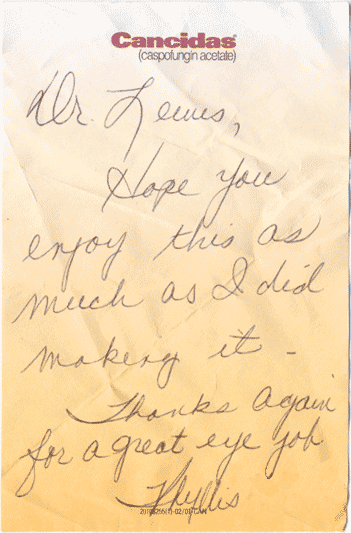 Cancidas
(caspofungin acetate)
Dr. Lewis,
Hope you
enjoy this as
much as I did
making it -
Thanks again
for a great eye job
Phyllis